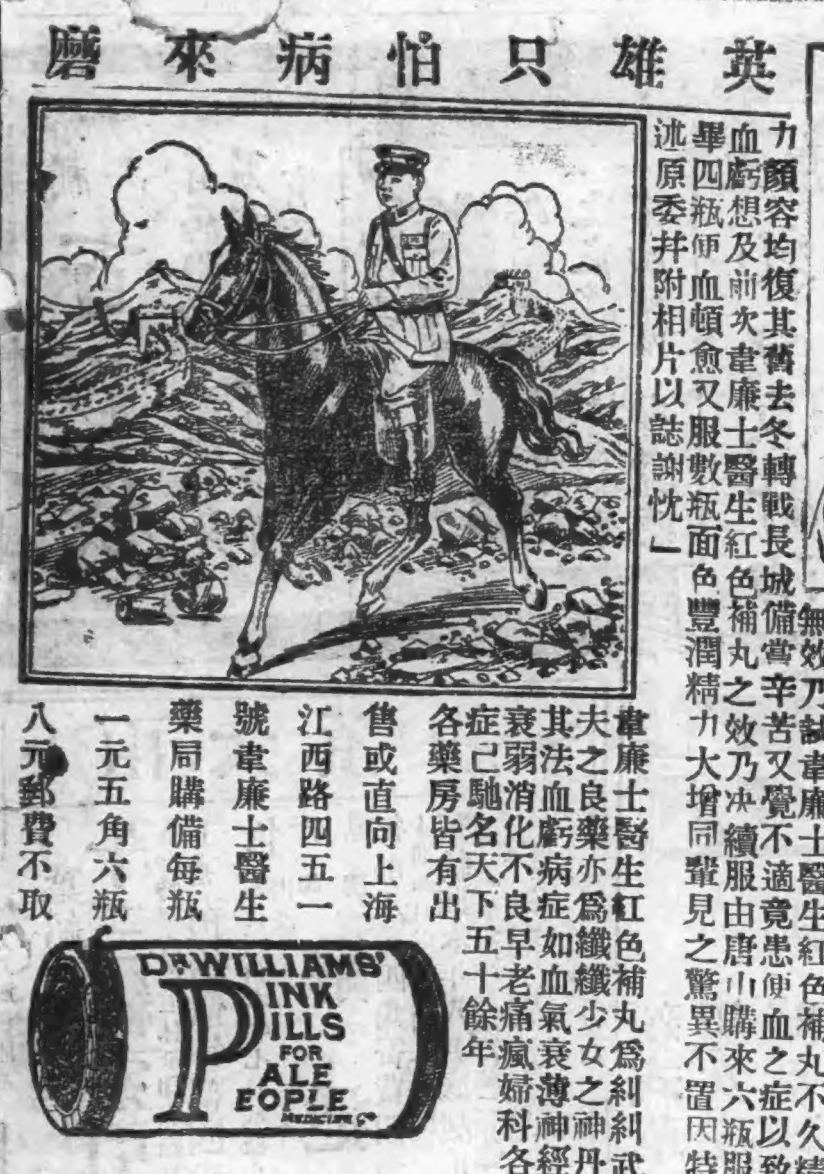 英雄只怕病來磨
無效乃試韋廉士醫生紅色補丸不久精
力顏容均復其舊去冬轉戰長城備嘗辛苦又覺不適竟患便血之症以致
血虧想及前次韋廉士醫生紅色補丸之效乃决續服由唐山購來六瓶服
畢四瓶便血頓愈又服數瓶面色豐潤精力大增同輩見之驚異不置因特
述原委幷附相片以誌謝忱」
韋廉士醫生紅色補丸爲糾糾武
夫之良藥亦爲纖纖少女之神丹
其法血虧病症如血氣衰薄神經
衰弱消化不良早老痛瘋婦科各
症已馳名天下五十餘年
各藥房皆有出
售或直向上海
江西路四五一
號韋廉士醫生
藥局購備每瓶
一元五角六瓶
八元郵費不取
DR WILLIAMS'
PINK
PILLS
FOR
PALE
PEOPLE
MEDICINE Co